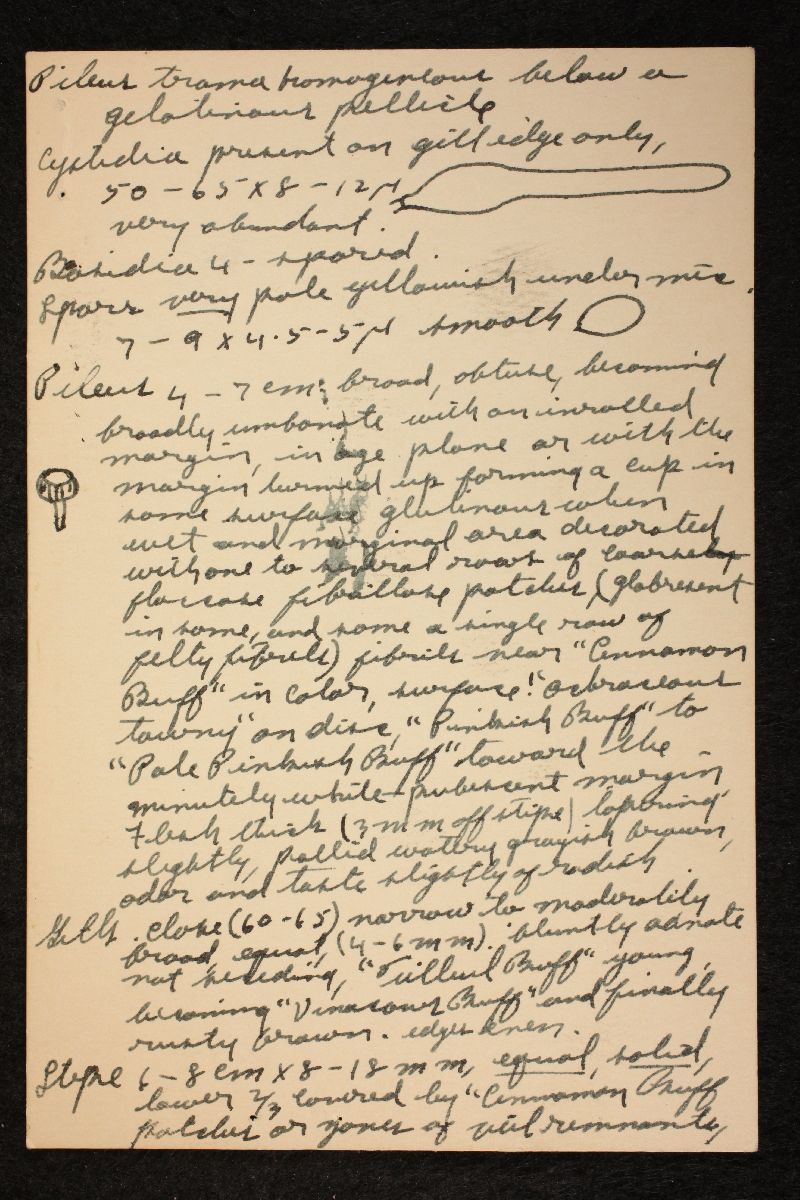 Pileus trama homogeneous below a
gelatinous pellicle
Cystidia present on gill edge only,
50 – 65 X 8 – 12 μ
very abundant.
Basidia 4 – spored.
Spores very pale yellowish under mic.
7 – 9 X 4.5 – 5 μ smooth
Pileus 4 – 7 cm. broad, obtuse, becoming
broadly umbonate with an inrolled
margin, in age plane or with the
margin turned up forming a cup in
some surface glutinous when
wet and marginal area decorated
with one to several rows of coarse
floccose fibrillose patches (glabrescent
in some, and some a single row of
felty fibrils) fibrils near "Cinnamon
Buff" in color, surface "ochraceous
tawny" on disc, "Pinkish Buff" to
"Pale Pinkish Buff" toward the
minutely white-pubescent margin
Flesh thick (3 mm off stipe) tapering
slightly, pallid watery grayish brown,
odor and taste slightly of radish.
Gills close (60-65) narrow to moderately
broad, equal, (4-6 mm). bluntly adnate
not seceding, "Tilleul Buff" young,
becoming "Vinaceous Buff" and finally
rusty brown. edges even.
Stipe 6 – 8 cm X 8 – 18 mm, equal, solid,
lower 2/3 covered by "Cinnamon Buff
patches or zones of veil remnants,